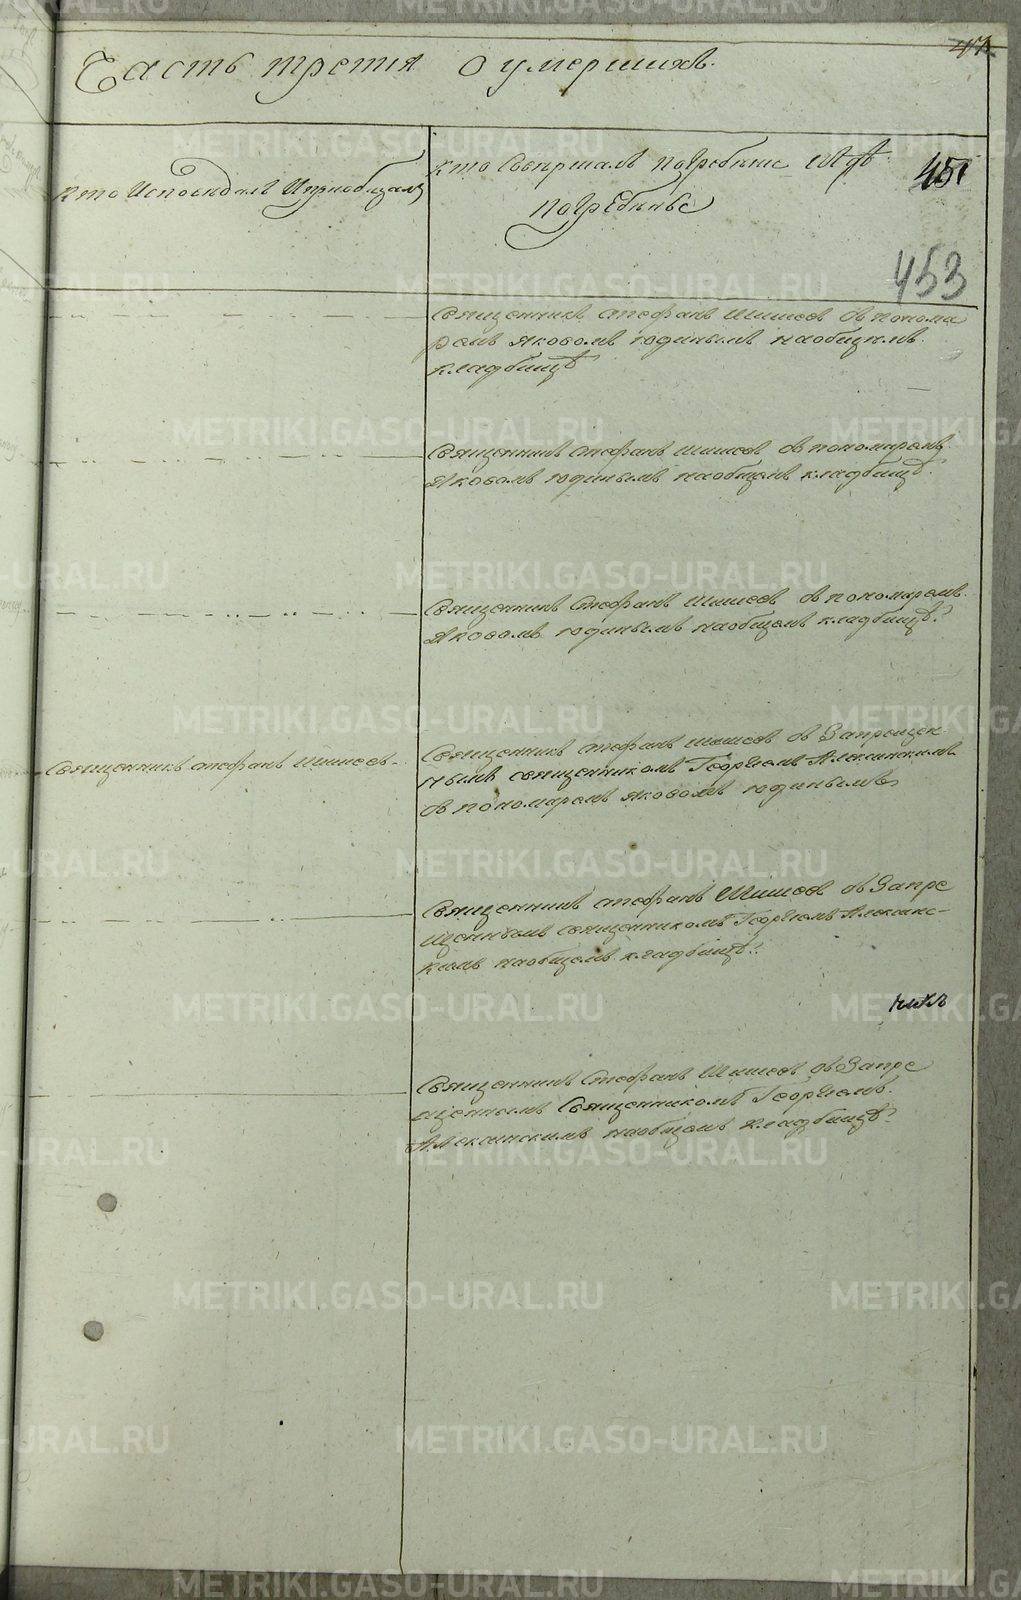 Часть третия о умершихъ.
Кто Исповедалъ Иприобщалъ
Кто Совершалъ погребение Игдѣ
погребены
451
453
Священникъ стефанъ Шишевъ спонома
ремъ яковомъ юдинымъ наобщемъ
кладбищѣ
Священникъ стефанъ Шишевъ спономаремъ
яковомъ юдинымъ наобщемъ кладбищѣ.
Священникъ Стефанъ Шишевъ спономаремъ
яковомъ юдинымъ наобщемъ кладбищѣ
Священникъ стефанъ Шишевъ
Священникъ стефанъ Шишевъ сЗапрещен
нымъ священникомъ Георгиемъ Алексинскимъ
спономаремъ яковомъ юдинымъ
Священникъ стефанъ Шишевъ сЗапре
щеннымъ священникомъ Георгиемъ
наобщемъ кладбищѣ
Священникъ Стефанъ Шишевъ сЗапре
щеннымъ Священникомъ Георгиемъ
Алексинскимъ наобщемъ кладбищѣ
METRIKI.GASO-URAL.RU